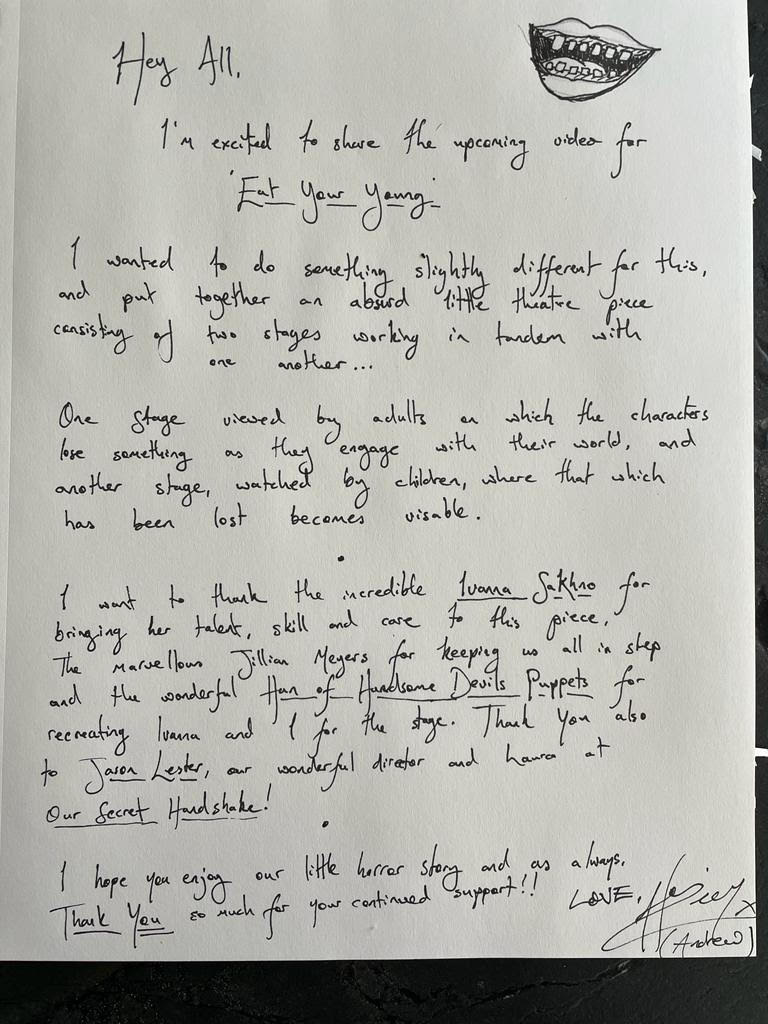 Hey All,
I'm excited to share the upcoming video for
'Eat Your Young'
I wanted to do something slightly different for this,
and put together an absurd little theatre piece
consisting of two stages working in tandem with
one another...
One stage viewed by adults on which the characters
lose something as they engage with their world, and
another stage, watched by children, where that which
has been lost becomes visable.
I want to thank the incredible Ivanna Sakhno for
bringing her talent, skill and care to this piece,
The marvellous Jillian Meyers for keeping us all in step
and the wonderful Han of Handsome Devils Puppets for
recreating Ivanna and I for the stage. Thank You also
to Jason Lester, our wonderful director and Laura at
Our Secret Handshake!
I hope you enjoy our little horror story and as always,
Thank You so much for your continued support!!
LOVE, Hozier x
(Andrew)